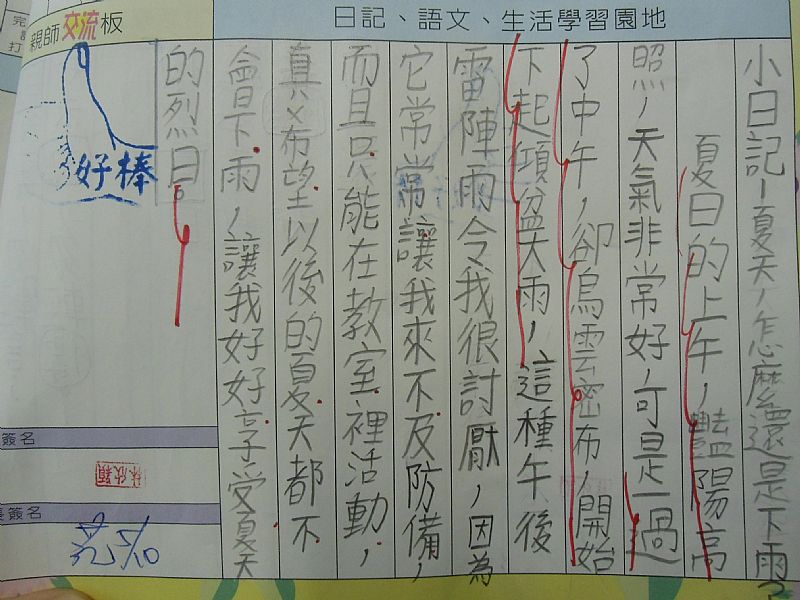 日記、語文、生活學習園地
小日記-夏天,怎麼還是下雨?
夏日的上午,豔陽高
照,天氣非常好,可是一過
了中午,卻烏雲密布,開始
下起傾盆大雨,這種午後
雷陣雨令我很討厭,因為
它常常讓我來不及防備,
而且只能在教室裡活動,
真希望以後的夏天都不
會下雨,讓我好好享受夏天
的烈日。
親師交流板
好棒
簽名
簽名
5/10